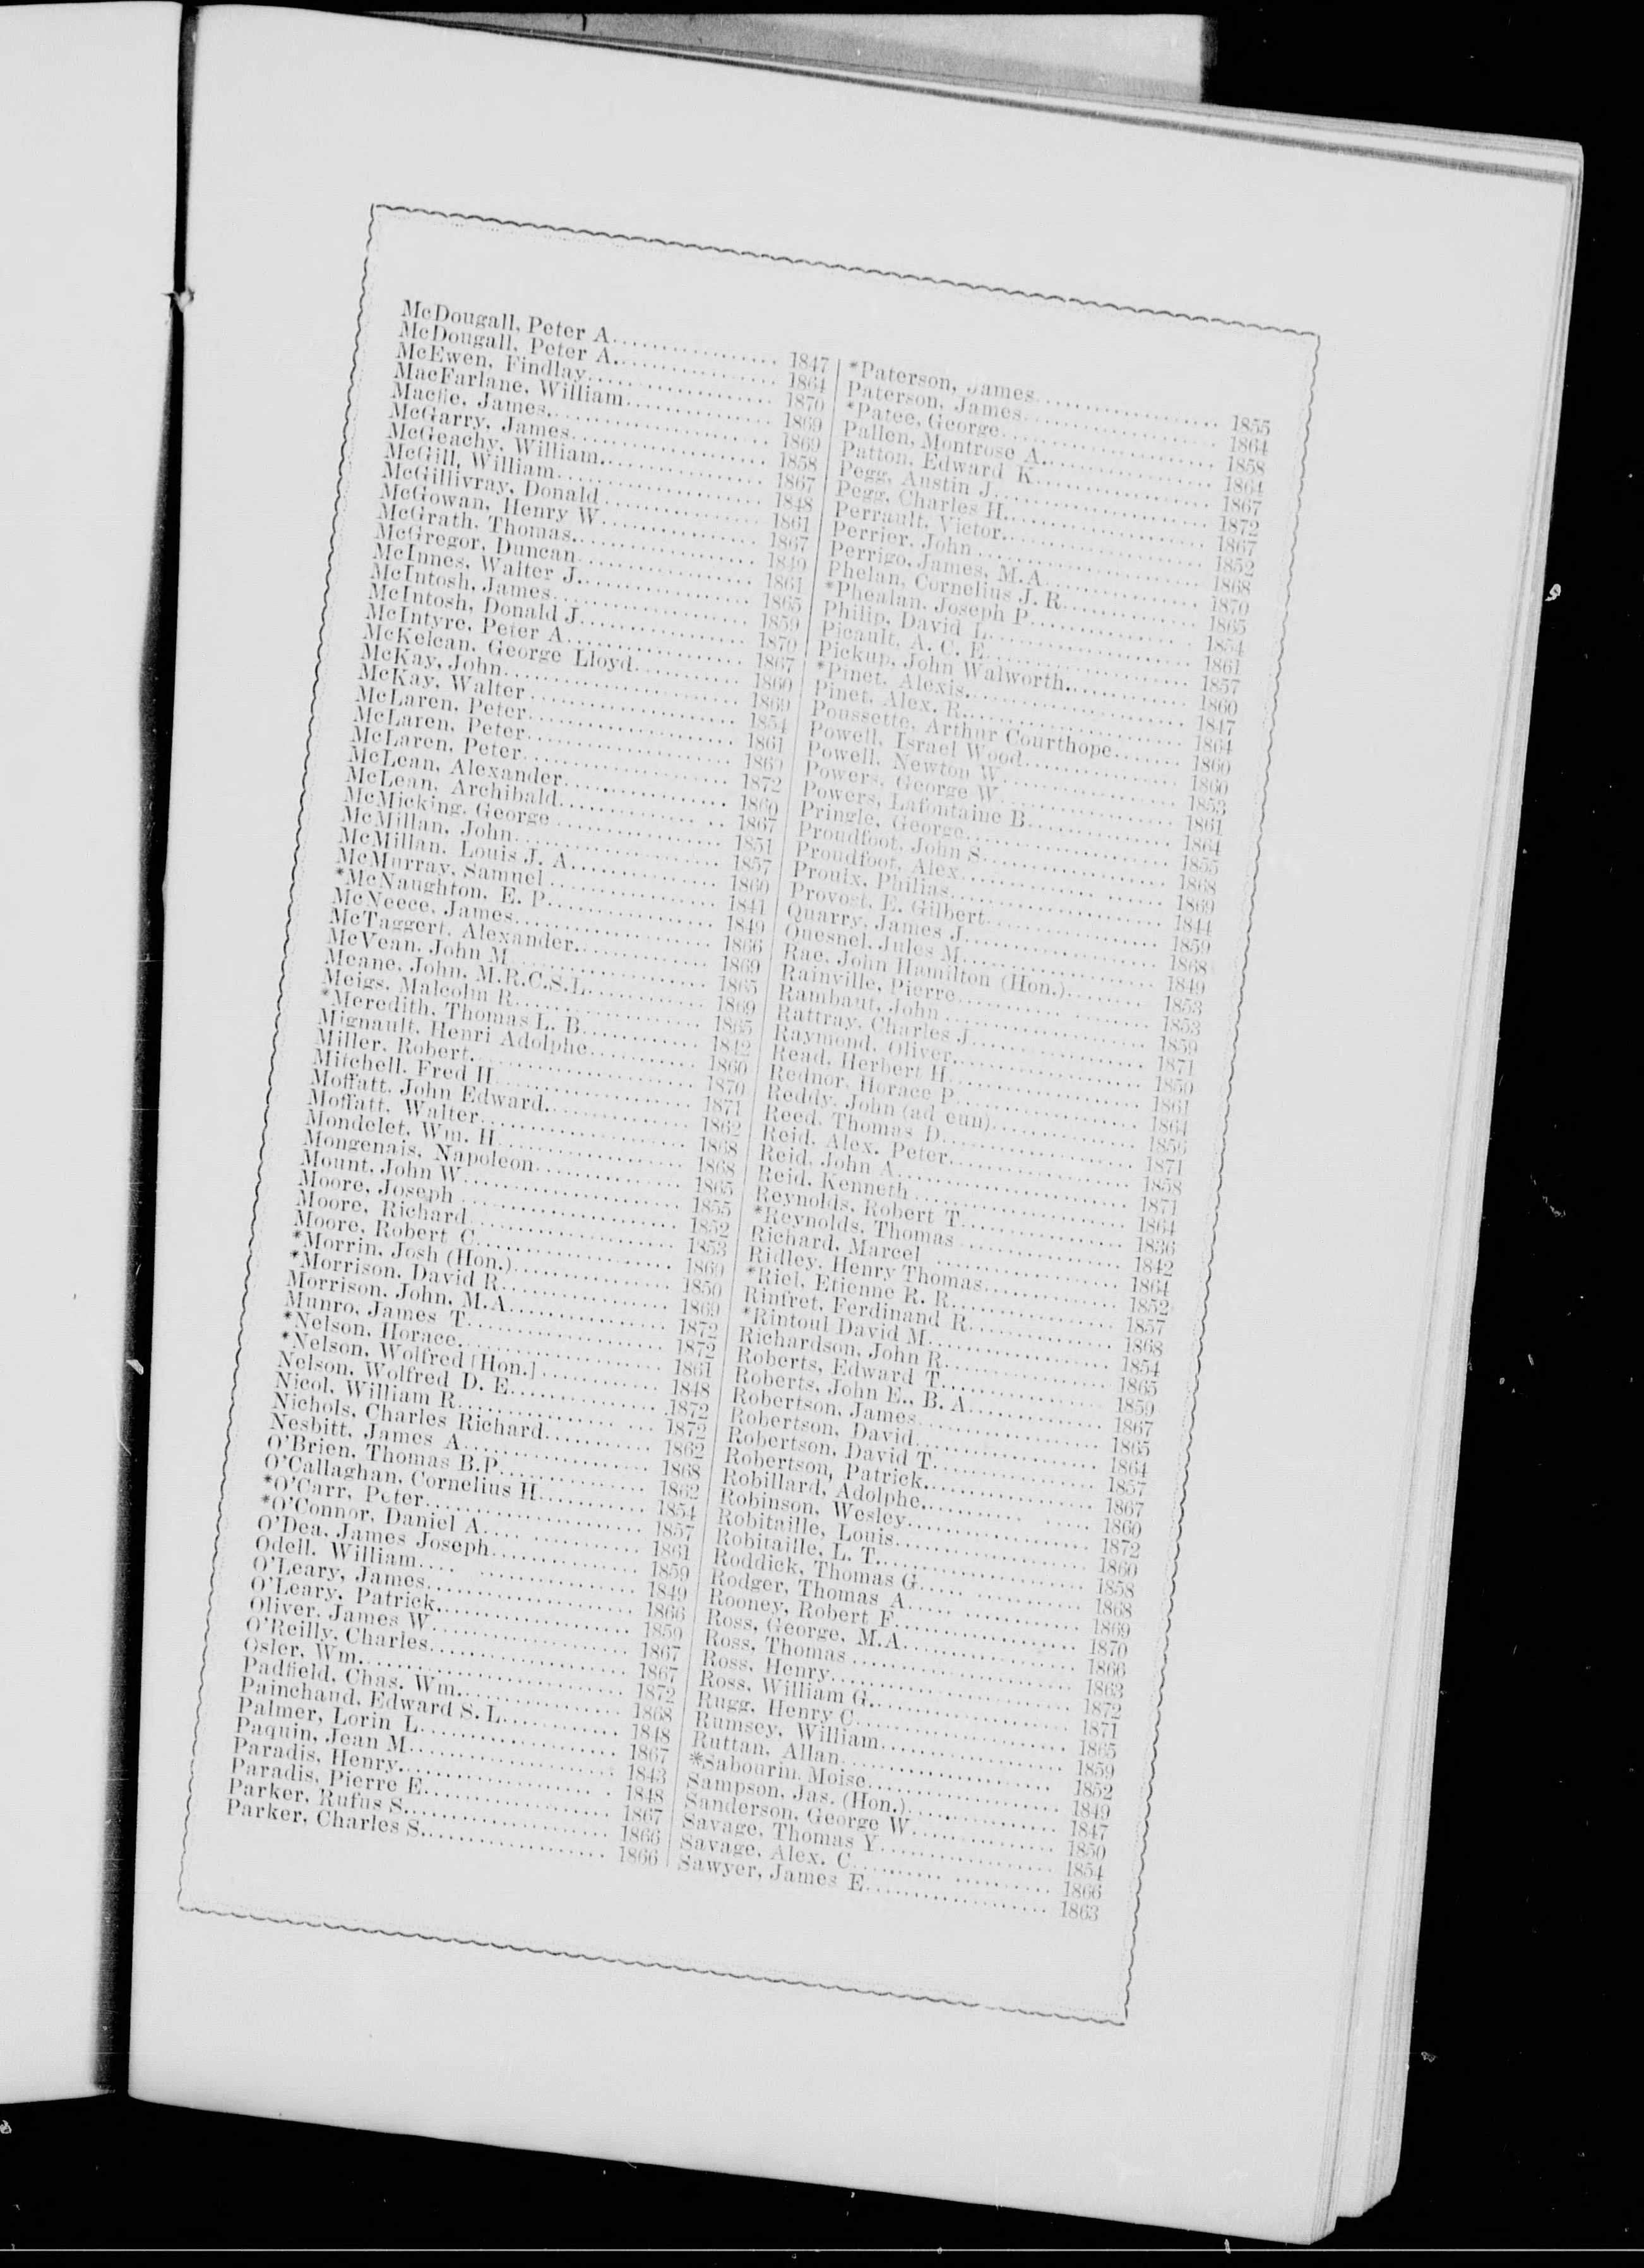 McDougall, Peter A. 1847
McDougall, Peter A. 1864
McEwen, Findlay 1870
MacFarlane, William 1869
Macfie, James 1869
McGarry, James 1858
McGeachy, William 1867
McGill, William 1848
McGillivray, Donald 1861
McGowan, Henry W 1867
McGrath, Thomas 1849
McGregor, Duncan 1861
McInnes, Walter J. 1865
McIntosh, James 1859
McIntosh, Donald J 1870
McIntyre, Peter A 1867
McKelcan, George Lloyd 1860
McKay, John 1869
McKay, Walter 1854
McLaren, Peter 1861
McLaren, Peter 1869
McLaren, Peter 1872
McLean, Alexander 1860
McLean, Archibald 1867
McMicking, George 1851
McMillan, John 1857
McMillan, Louis J. A. 1860
McMurray, Samuel 1841
*McNaughton, E. P. 1849
McNeece, James 1866
McTaggert, Alexander 1869
McVean, John M 1865
Meane, John, M.R.C.S.L. 1869
Meigs, Malcolm R. 1865
*Meredith, Thomas L. B. 1842
Mignault, Henri Adolphe 1860
Miller, Robert 1870
Mitchell, Fred H 1871
Moffatt, John Edward 1862
Moffatt, Walter 1868
Mondelet, Wm. H 1868
Mongenais, Napoleon 1865
Mount, John W 1855
Moore, Joseph 1852
Moore, Richard 1853
Moore, Robert C. 1869
*Morrin, Josh (Hon.) 1850
*Morrison, David R. 1869
Morrison, John, M.A. 1872
Munro, James T 1872
*Nelson, Horace 1861
*Nelson, Wolfred [Hon.] 1848
Nelson, Wolfred D. E. 1872
Nicol, William R. 1872
Nichols, Charles Richard 1862
Nesbitt, James A. 1868
O'Brien, Thomas B.P. 1862
O'Callaghan, Cornelius H 1854
*O'Carr, Peter 1857
*O'Connor, Daniel A. 1861
O'Dea, James Joseph 1859
Odell, William 1849
O'Leary, James 1866
O'Leary, Patrick 1859
Oliver, James W. 1867
O'Reilly, Charles 1867
Osler, Wm. 1872
Padfield, Chas. Wm. 1868
Painchaud, Edward S. L. 1848
Palmer, Lorin L. 1867
Paquin, Jean M. 1843
Paradis, Henry 1848
Paradis, Pierre E. 1867
Parker, Rufus S. 1866
Parker, Charles S. 1866
*Paterson, James 1855
Paterson, James 1864
*Patee, George 1858
Pallen, Montrose A. 1864
Patton, Edward K. 1867
Pegg, Austin J. 1872
Pegg, Charles H. 1867
Perrault, Victor 1852
Perrier, John 1868
Perrigo, James, M.A. 1870
Phelan, Cornelius J. R. 1865
*Phealan, Joseph P. 1854
Philip, David L. 1861
Picault, A. C. E. 1857
Pickup, John Walworth 1860
*Pinet, Alexis 1847
Pinet, Alex. R. 1864
Poussette, Arthur Courthope 1860
Powell, Israel Wood 1860
Powell, Newton W 1853
Powers, George W 1861
Powers, Lafontaine B. 1864
Pringle, George 1855
Proudfoot, John S. 1868
Proudfoot, Alex. 1869
Proulx, Philias 1844
Provost, E. Gilbert 1859
Quarry, James J. 1868
Quesnel, Jules M. 1849
Rae, John Hamilton (Hon.) 1853
Rainville, Pierre 1853
Rambaut, John 1859
Rattray, Charles J. 1871
Raymond, Oliver 1850
Read, Herbert H. 1861
Rednor, Horace P. 1864
Reddy, John (ad eun) 1856
Reed, Thomas D. 1871
Reid, Alex. Peter 1858
Reid, John A. 1871
Reid, Kenneth 1864
Reynolds, Robert T. 1836
*Reynolds, Thomas 1842
Richard, Marcel 1864
Ridley, Henry Thomas 1852
*Riel, Etienne R. R. 1857
Rinfret, Ferdinand R. 1868
*Rintoul David M. 1854
Richardson, John R. 1865
Roberts, Edward T. 1859
Roberts, John E., B. A. 1867
Robertson, James 1865
Robertson, David 1864
Robertson, David T. 1857
Robertson, Patrick 1867
Robillard, Adolphe 1860
Robinson, Wesley 1872
Robitaille, Louis 1860
Robitaille, L. T. 1858
Roddick, Thomas G. 1868
Rodger, Thomas A. 1869
Rooney, Robert F. 1870
Ross, George, M.A. 1866
Ross, Thomas 1863
Ross, Henry 1872
Ross, William G. 1871
Rugg, Henry C. 1865
Rumsey, William 1859
Ruttan, Allan 1852
*Sabourin, Moise 1849
Sampson, Jas. (Hon.) 1847
Sanderson, George W. 1850
Savage, Thomas Y. 1854
Savage, Alex. C. 1866
Sawyer, James E. 1863